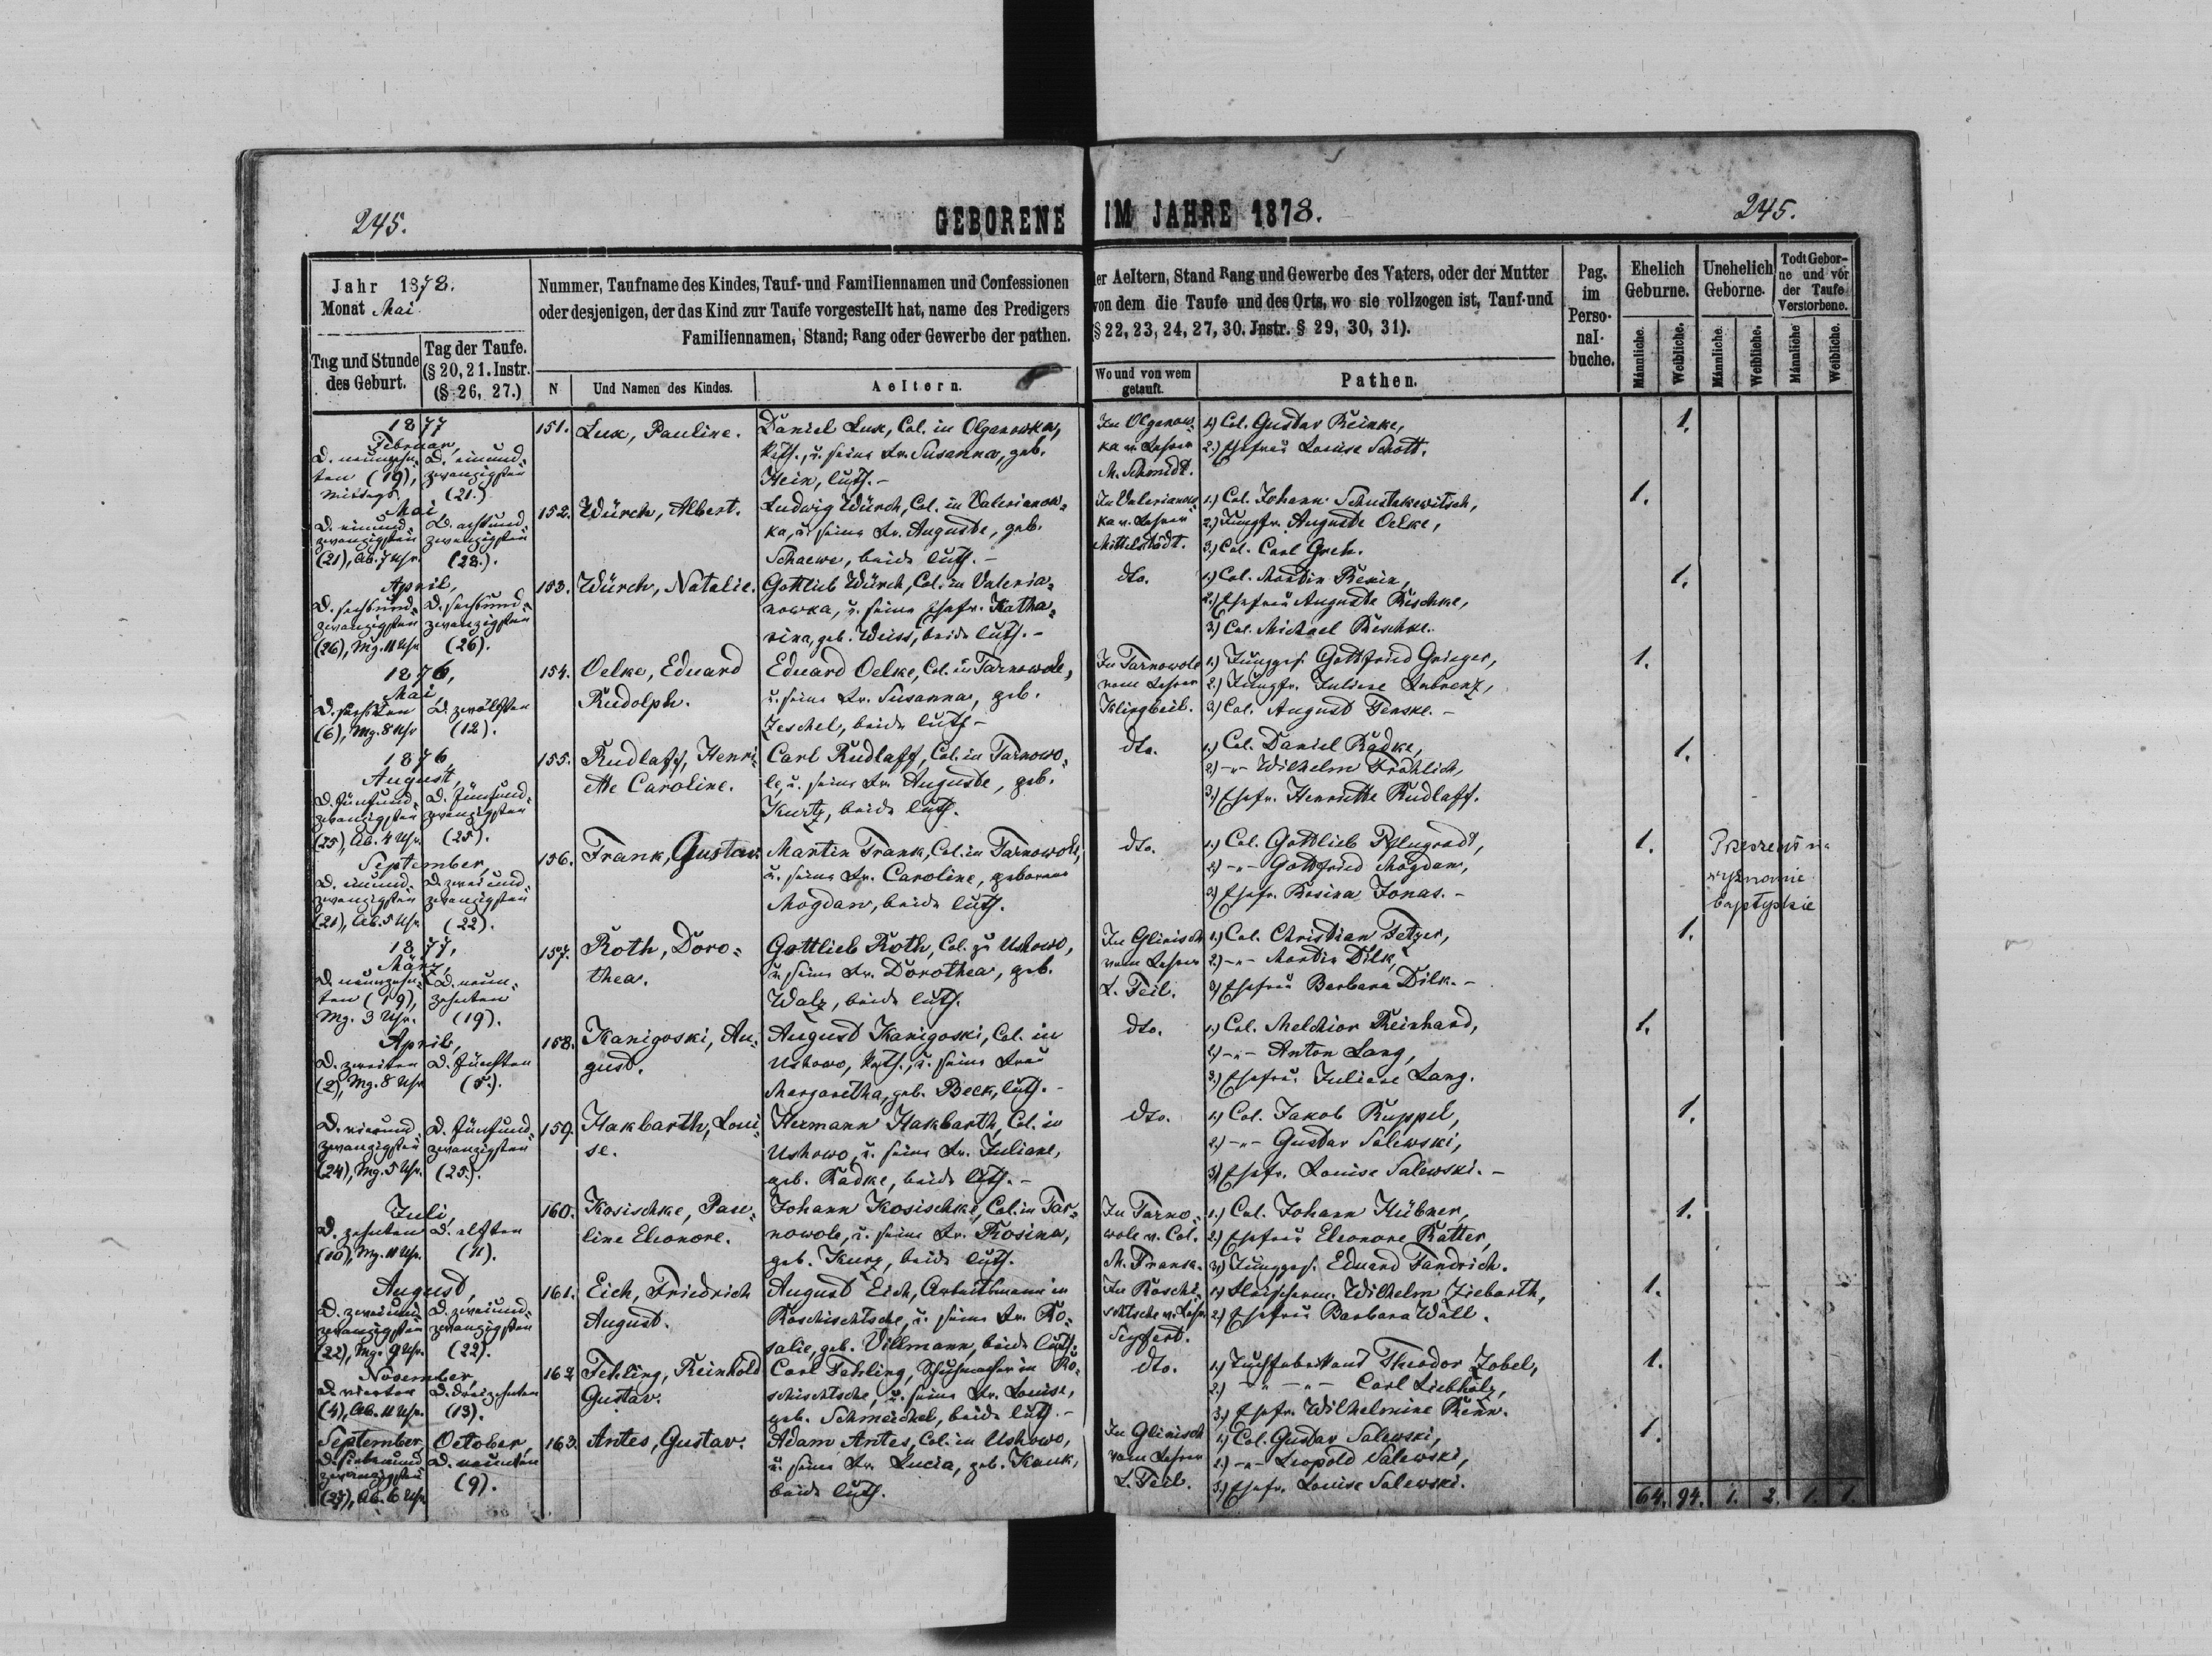 245.
GEBORENE IM JAHRE 1878.
245.
Jahr 1878.
Monat Mai
Tag und Stunde des Geburt.
Tag der Taufe.
(§ 20, 21. Instr.
(§ 26, 27.)
Nummer, Taufname des Kindes, Tauf- und Familiennamen und Confessionen
oder desjenigen, der das Kind zur Taufe vorgestellt hat, name des Predigers
Familiennamen, Stand; Rang oder Gewerbe der pathen.
N
Und Namen des Kindes.
Aeltern.
der Aeltern, Stand Rang und Gewerbe des Vaters, oder der Mutter
von dem die Taufe und des Orts, wo sie vollzogen ist, Tauf-und
§ 22, 23, 24, 27, 30. Jnstr. § 29, 30, 31).
Wo und von wem
getauft.
Pathen.
Pag.
im
Perso-
nal-
buche.
Ehelich
Geburne.
Unehelich
Geborne.
Todt Gebor-
ne und vor
der Taufe
Verstorbene.
Männliche.
Weibliche.
Männliche.
Weibliche.
Männliche
Weibliche.
1877
Februar,
D. neunzehn-
ten (19),
Mittags.
D. einund-
zwanzigsten
(21.)
151.
Lux, Pauline.
Daniel Lux, Col. in Olganowka,
kath., u. seine Fr. Susanna, geb.
Hein, luth. -
In Olganow-
ka v. Lehrer
M. Schmidt.
1.) Col. Gustav Reinke,
2.) Ehefrau Louise Schott.
1.
Mai,
D. einund-
zwanzigsten
(21), Ab. 7 Uhr.
D. achtund-
zwanzigsten
(28.).
152.
Würch, Albert.
Ludwig Würch, Col. in Valerianow-
ka, u. seine Fr. Auguste, geb.
Schaewe, beide luth. -
In Valerianow-
ka v. Lehrer
Mittelstädt.
1.) Col. Johann Schustakewitsch,
2.) Jungfr. Auguste Oelke,
3.) Col. Carl Greh.
1.
April,
D. sechsund-
zwanzigsten
(26), Mg. 11 Uhr.
D. sechsund-
zwanzigsten
(26).
153.
Würch, Natalie.
Gottlieb Würch, Col. in Valeria-
nowka, u. seine Ehefr. Katha-
rina, geb. Weiss, beide luth. -
dto.
1.) Col. Martin
2.) Ehefrau Auguste Rischke,
3.) Col. Michael Reschke.
1.
1876,
Mai,
D. sechsten
(6), Mg. 8 Uhr
D. zwölften
(12).
154.
Oelke, Eduard
Rudolph.
Eduard Oelke, Col. in Tarnowole,
u. seine Fr. Susanna, geb.
Zeschel, beide luth -
In Tarnowole
vom Lehrer
Klingbeil.
1.) Junggef. Gottfried Grieger,
2.) Jungfr. Juliene Labrenz,
3.) Col. August Fenske. -
1.
1876,
August,
D. fünfund-
zwanzigsten
(25), Ab. 4 Uhr.
D. fünfund-
zwanzigsten
(25).
155.
Rudlaff, Henri-
ette Caroline.
Carl Rudlaff, Col. in Tarnowo-
le, u. seine Fr. Auguste, geb.
Kurtz, beide luth.
dto.
1.) Col. Daniel Radke,
2.) -„- Wilhelm Fröhlich,
3.) Ehefr. Henriette Rudlaff.
1.
September,
D. einund-
zwanzigsten
(21), Ab. 5 Uhr.
D. zweiund-
zwanzigsten
(22).
156.
Frank, Gustav.
Martin Frank, Col. in Tarnowole,
u. seine Fr. Caroline, geborene
Mogdan, beide luth.
dto.
1.) Col. Gottlieb Pflugradt,
2.) -„- Gottfried Mogdan,
3.) Ehefr. Rosina Jonas. -
1.
wyznanie
baptyskie
1877,
März,
D. neunzehn-
ten (19),
Mg. 3 Uhr.
D. neun-
zehnten
(19).
157.
Roth, Doro-
thea.
Gottlieb Roth, Col. zu Ushowo,
u. seine Fr. Dorothea, geb.
Walz, beide luth.
In Glinisch
vom Lehrer
L. Teil.
1.) Col. Christian Fetzer,
2.) -„- Martin Dilk,
3.) Ehefrau Barbara Dilk. -
1.
April,
D. zweiten
(2), Mg. 8 Uhr
D. fünften
(5.).
158.
Kanigoski, Au-
gust.
August Kanigoski, Col. in
Ushowo, kath., u. seine Frau
Margaretha, geb. Beck, luth. -
dto.
1.) Col. Melchior Reinhard,
2.) -„- Anton Lang,
3.) Ehefrau Juliane Lang.
1.
D. vierund-
zwanzigsten
(24), Mg. 5 Uhr.
D. fünfund-
zwanzigsten
(25.).
159.
Hakbarth, Loui-
se.
Hermann Hakbarth, Col. in
Ushowo, u. seine Fr. Juliane,
geb. Radke, beide luth. -
dto.
1.) Col. Jakob Ruppel,
2.) -„- Gustav Salewski,
3.) Ehefr. Louise Salewski. -
1.
Juli,
D. zehnten
(10), Mg. 11 Uhr.
D. elften
(11).
160.
Kosischke, Pau-
line Eleonore.
Johann Kosischke, Col. in Tar-
nowole, u. seine Fr. Rosina,
geb. Kurz, beide luth.
In Tarno-
wole v. Col.
M. Frank.
1.) Col. Johann Hübner,
2.) Ehefrau Eleonore Ratter,
3.) Junggef. Eduard Fandrich.
1.
August,
D. zweiund-
zwanzigsten
(22), Mg. 9 Uhr.
D. zweiund-
zwanzigsten
(22).
161.
Eich, Friedrich
August.
August Eich, Arbeitsmann in
Roschischtsche, u. seine Fr. Ro-
salie, geb. Villmann, beide luth.
In Roschi-
schtsche v. Lehr.
Seyfert.
1.) Wilhelm Ziebarth,
2.) Ehefrau Barbara Wall.
1.
November,
D. vierten
(4), Ab. 11 Uhr.
D. dreizehnten
(13).
162
Fehling, Reinhold
Gustav.
Carl Fehling, Schuhmacher in Ro-
schischtsche, u. seine Fr. Louise,
geb. Schmeichel, beide luth. -
dto.
1.) Tuchfabrikant Theodor Zobel,
2.) -„- -„- Carl Liebholz,
3.) Ehefr. Wilhelmine Renn.
1.
September,
D. siebenund-
zwanzigsten
(27), Ab. 6 Uhr
October,
D. neunten
(9).
163.
Antes, Gustav.
Adam Antes, Col. in Ushowo,
u. seine Fr. Lucia, geb. Kauk,
beide luth.
In Glinisch
vom Lehrer
L. Teil.
1.) Col. Gustav Salewski,
2.) -„- Leopold Salewski,
3.) Ehefr. Louise Salewski.
1.
64. 94. 1. 2. 1. 1.